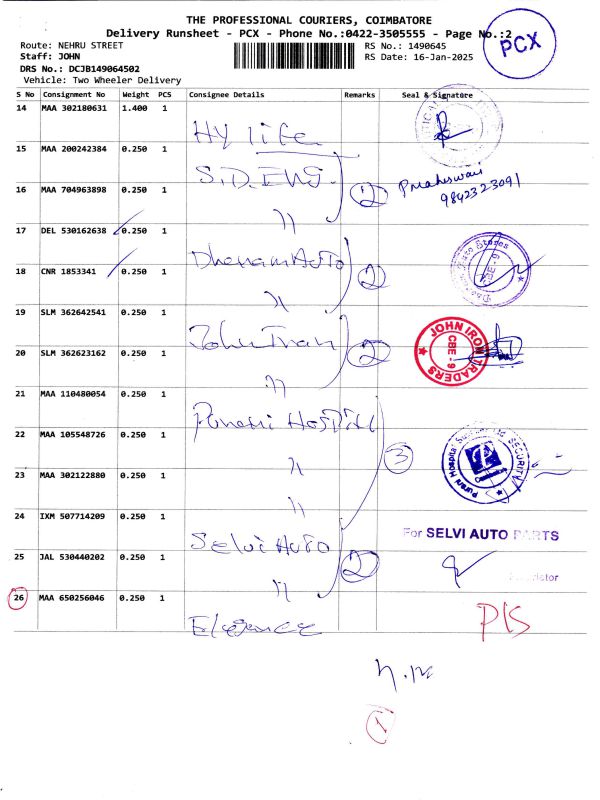 THE PROFESSIONAL COURIERS, COIMBATORE
Delivery Runsheet - PCX - Phone No.:0422-3505555 - Page No.:2
PCX
Route: NEHRU STREET
RS No.: 1490645
Staff: JOHN
RS Date: 16-Jan-2025
DRS No.: DCJB149064502
Vehicle: Two Wheeler Delivery
S No Consignment No Weight PCS Consignee Details Remarks Seal & Signature
14 MAA 302180631 1.400 1 Hy life
15 MAA 200242384 0.250 1 S.D.ENG.
16 MAA 704963898 0.250 1 "
9842323091
17 DEL 530162638 0.250 1 Dhanam Auto
18 CNR 1853341 0.250 1 " 2
19 SLM 362642541 0.250 1 John Iron
JOHN IRON TRADERS CBE-9
20 SLM 362623162 0.250 1 " 2
21 MAA 110480054 0.250 1 Purani Hospital
22 MAA 105548726 0.250 1 " 3
23 MAA 302122880 0.250 1 "
24 IXM 507714209 0.250 1 Selvi Auto
For SELVI AUTO PARTS
25 JAL 530440202 0.250 1 " 2
26 MAA 650256046 0.250 1 Elegance
1